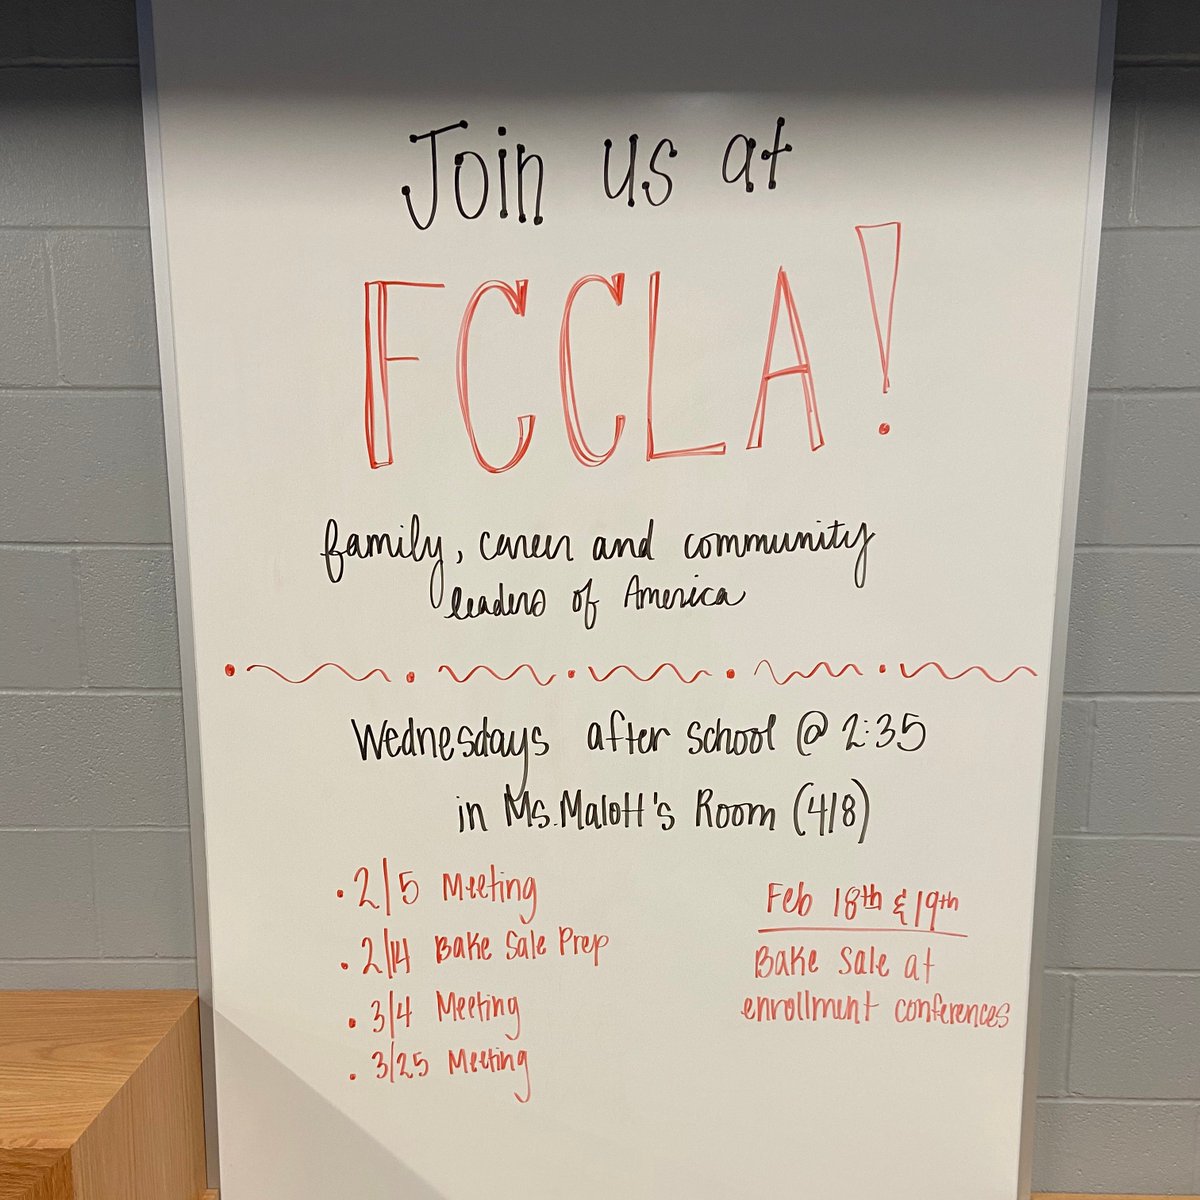 Join us at
FCCLA!
family, career and community
leaders of America
Wednesdays after school @ 2:35
in Ms. Malott's Room (418)
• 2/5 Meeting
• 2/14 Bake Sale Prep
• 3/4 Meeting
• 3/25 Meeting
Feb 18th & 19th
Bake Sale at
enrollment conferences